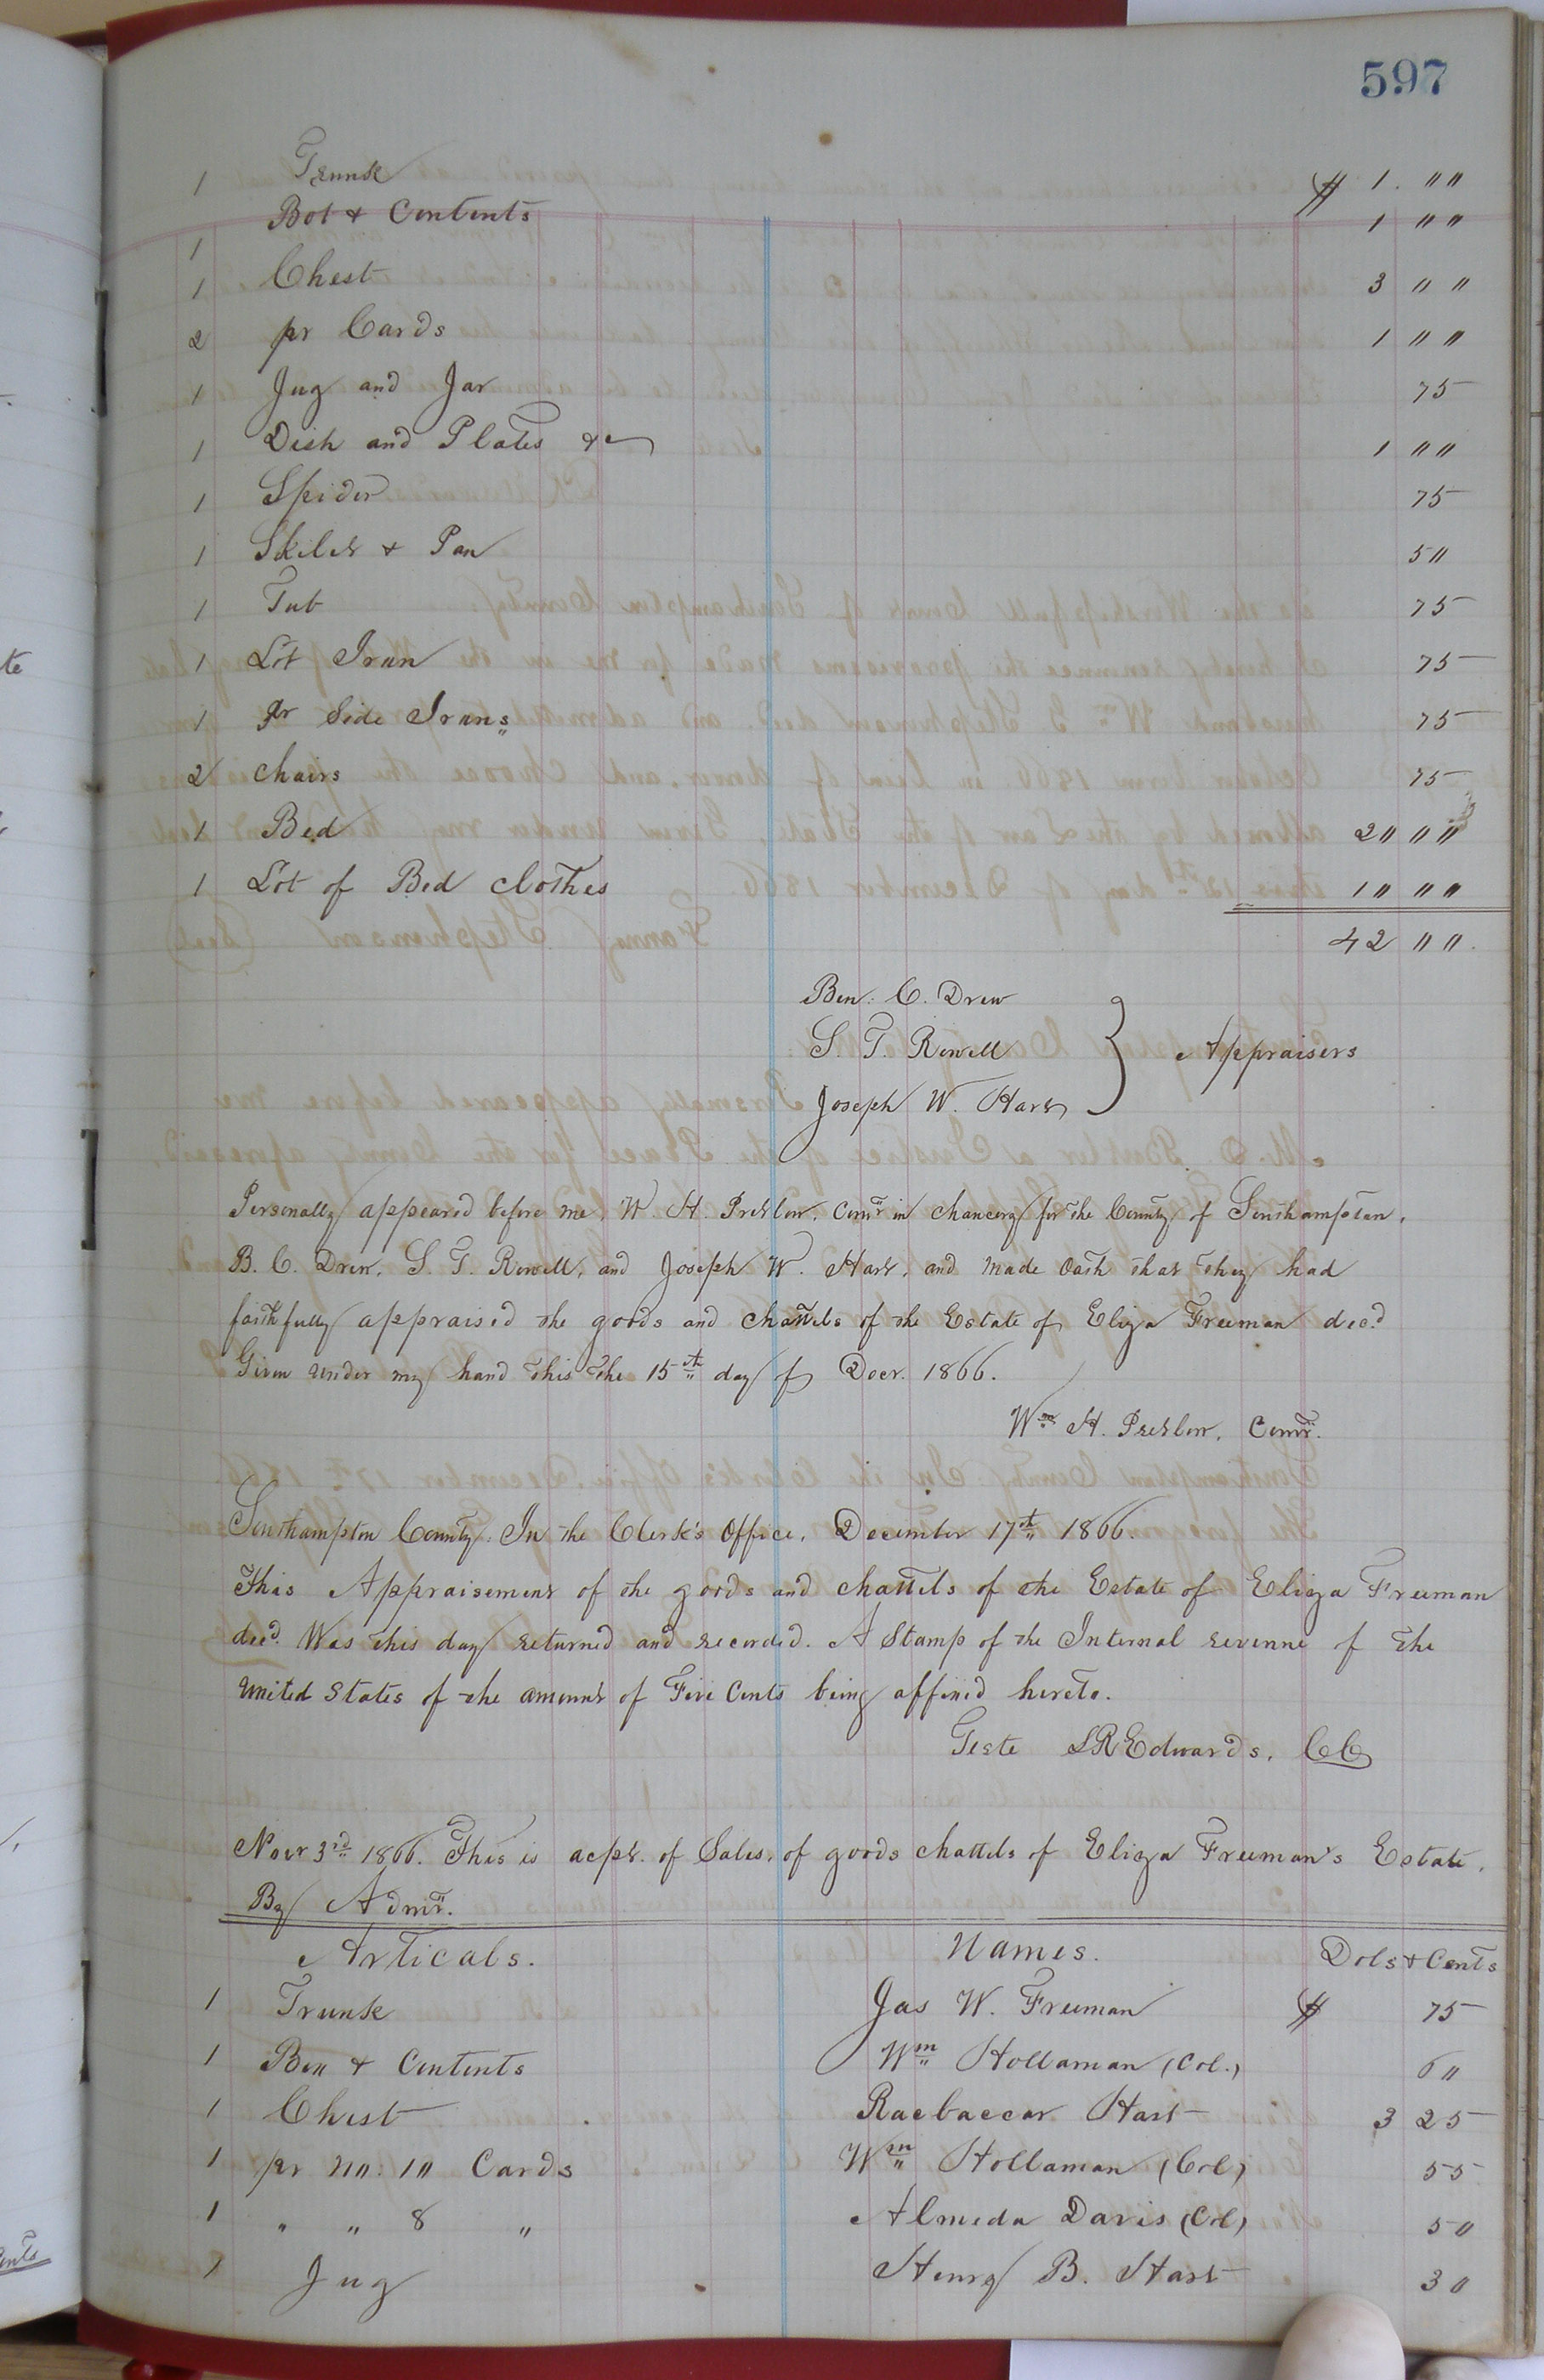 597
1 Trunk $ 1. ""
1 Box & Contents 1 ""
1 Chest 3 ""
2 pr Cards 1 ""
1 Jug and Jar 75
1 Dish and Plates &c 1 ""
1 Spider 75
1 Skilet & Pan 50
1 Tub 75
1 Lot Iran 75
1 pr Side Irans 75
2 chairs 75
1 Bed 20 ""
1 Lot of Bed clothes 10 ""
42 "".
Ben: C. Drew
S. T. Rowell } Appraisers
Joseph W. Hart
Personally appeared before me, W. H. Pretlow, Comr. in chancery for the County of Southampton,
B. C. Drew, S. T. Rowell, and Joseph W. Hart, and made oath that they had
faithfully appraised the goods and chattels of the Estate of Eliza Freeman decd.
Given under my hand this the 15th day of Decr. 1866.
Wm H. Pretlow, Comr.
Southampton County. In the Clerk's Office, December 17th 1866.
This Appraisement of the goods and chattels of the Estate of Eliza Freeman
decd. Was this day returned and recorded. A Stamp of the Internal revenue of the
united States of the amount of Five Cents being affixed hereto.
Teste LREdwards, CC
Novr 3rd 1866. This is acpt. of Sales, of goods chattels of Eliza Freeman's Estate,
By Admr.
Articals. Names. Dols & Cents
1 Trunk Jas W. Freeman $ 75
1 Box & Contents Wm Hollaman (Col.) 60
1 Chest Racbaccar Hart 3 25
1 pr no: 10 Cards Wm Hollaman (Col) 55
1 " " 8 " Almeda Davis (Col) 50
1 Jug Henry B. Hart 30
te
Cents